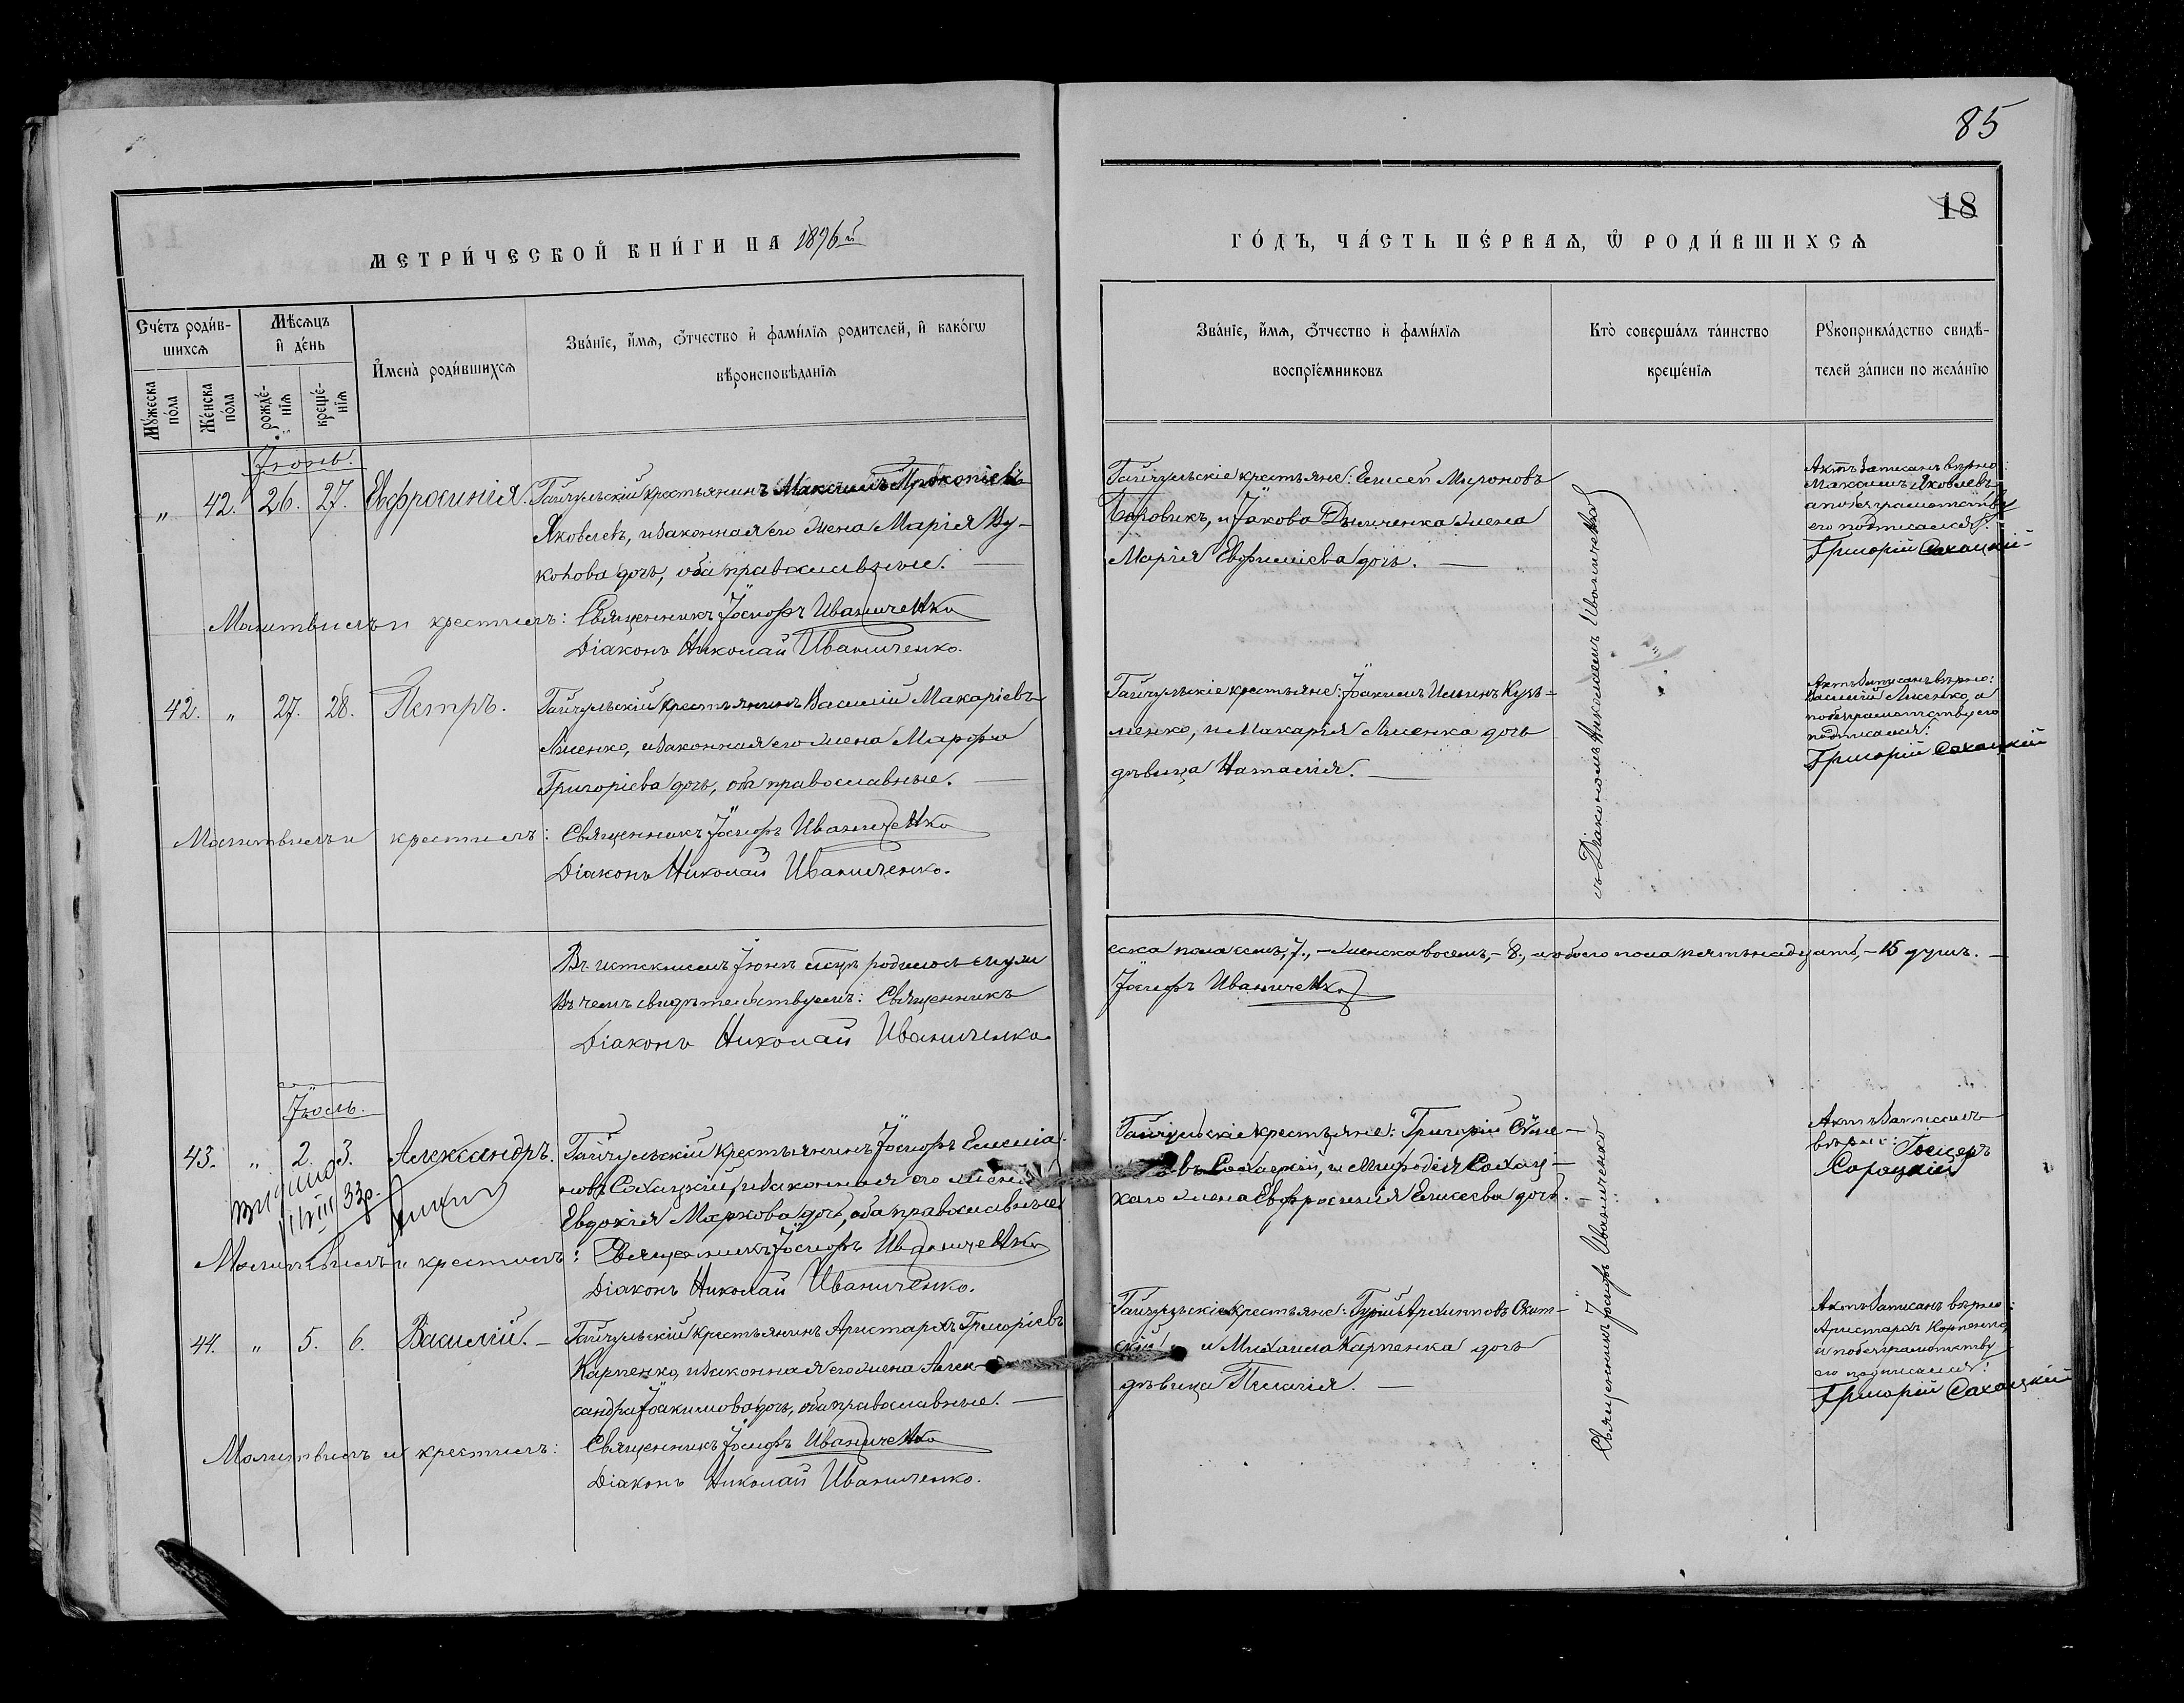 85
18
МЕТРИ́ЧЕСКОЙ КНИ́ГИ НА 1896й
ГО́ДЪ, ЧА́СТЬ ПЕ́РВАѦ, Ѽ РОДИ́ВШИХСѦ
Сче́тъ роди́в-
шихсѧ
Мѣ́сѧцъ
и҆ де́нь
Мꙋ́жеска
по́ла
Же́нска
по́ла
рожде́-
нїѧ
креще́-
нїѧ
И҆мена̀ роди́вшихсѧ
Зва́нїе, и҆́мѧ, ѻ҆́тчество и҆ фами́лїѧ родителей, и҆ како́гѡ
вѣроисповѣ́данїѧ
Зва́нїе, и҆́мѧ, ѻ҆́тчество и҆ фами́лїѧ
воспрїе́мниковъ
Кто̀ соверша́лъ та́инство
креще́нїѧ
Рꙋкоприкла́дство свидѣ́-
телей за́писи по жела́нїю
Іюнь.
" 42. 26. 27. Евфросинія. Гайчульскій крестьянинъ Максимъ Прокопіевъ
Яковлевъ, и законная его жена Марія Ву-
колова дочь, оба православные.
Молитвилъ и крестилъ: Священникъ Іосифъ Иваниченко
Діаконъ Николай Иваниченко.
Гайчульскіе крестьяне: Елисей Мироновъ
Боровикъ, и Іакова Дымченка жена
Марія Евфиміева дочь.
Актъ записанъ вѣрно:
Максимъ Яковлевъ
а по безграмотству
его подписался:
Григорій Сахацкій
42. " 27. 28. Петръ. Гайчульскій крестьянинъ Василій Макаріевъ
Лисенко, и законная его жена Марфа
Григоріева дочь, оба православные.
Молитвилъ и крестилъ: Священникъ Іосифъ Иваниченко
Діаконъ Николай Иваниченко.
Гайчульскіе крестьяне: Іоакимъ Ильинъ Кузь-
менко, и Макарія Лисенка дочь
дѣвица Наталія.
Актъ записанъ вѣрно:
Василій Лисенко, а
по безграмотству его
подписался:
Григорій Сахацкій
съ Діакономъ Николаемъ Иваниченко
Въ истекшемъ Іюнѣ мсцѣ родилось муже
ска пола семь, 7., — женска восемь, — 8., и обоего пола пятьнадцать, — 15 душъ.
Въ чемъ свидѣтельствуемъ: Священникъ
Іосифъ Иваниченко
Діаконъ Николай Иваниченко.
Іюль.
43. " 2. 3. Александръ. Гайчульскій крестьянинъ Іосифъ Емелiа-
новъ Сахацкій, и законная его жена
Евдокія Маркова дочь, оба православные
33р.
Молитвилъ и крестилъ: Священникъ Іосифъ Иваниченко
Діаконъ Николай Иваниченко.
Гайчульскіе крестьяне: Григорій
въ Сахацкій, и Мефодія Сахац-
каго жена Евфросинія Елисеева дочь.
Актъ записанъ
вѣрно: Іосифъ
Сахацкій
44. " 5. 6. Василій. Гайчульскій крестьянинъ Аристархъ Григоріевъ
Карпенко, и законная его жена Алек-
сандра Іоакимова дочь, оба православные.
Молитвилъ и крестилъ: Священникъ Іосифъ Иваниченко
Діаконъ Николай Иваниченко.
Гайчульскіе крестьяне: Гурій Архиповъ
и Михаила Карпенка дочь
дѣвица Пелагія.
Священникъ Іосифъ Иваниченко
Актъ записанъ вѣрно:
Аристархъ Карпенко,
а по безграмотству
его подписался:
Григорій Сахацкій